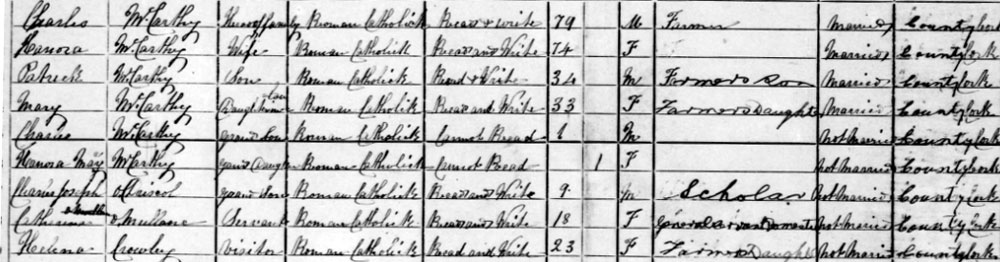 Charles McCarthy Head of family Roman Catholick Read & write 79 M Farmer Married County Cork
Hanora McCarthy Wife Roman Catholick Read and Write 74 F Married County Cork
Patrick McCarthy Son Roman Catholick Read & Write 34 M Farmers Son Married County Cork
Mary McCarthy Daughter in Law Roman Catholick Read and Write 33 F Farmers Daughter Married County Cork
Charles McCarthy Grand Son Roman Catholick Cannot Read 1 M Not Married County Cork
Hanora May McCarthy Grand Daughter Roman Catholick Cannot Read 1 F Not Married County Cork
Joseph Driscol Grand Son Roman Catholick Read and Write 9 M Scholar Not Married County Cork
Catherine Servant Roman Catholick Read and Write 18 F General Servant Domestic Not Married County Cork
Helena Crowley Visitor Roman Catholick Read and Write 23 F Farmers Daughter Not Married County Cork